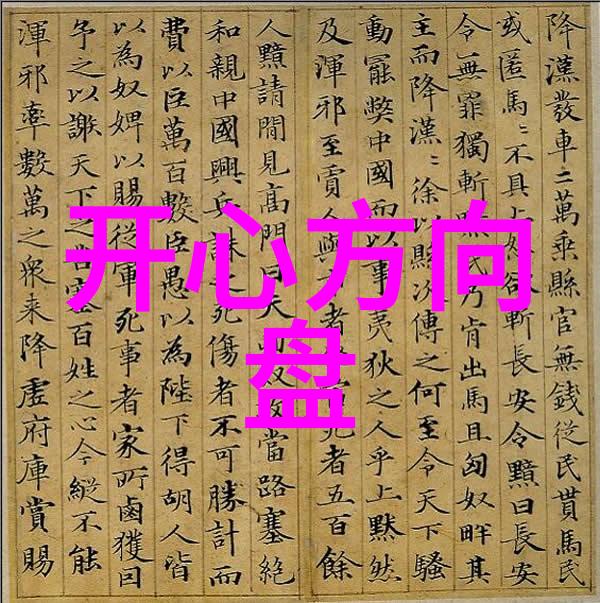 降漢發車二萬乘縣官無錢從民貰馬民
或匿馬〻不具上怒欲斬長安令黯曰長安
令無罪獨斬黯民乃肯出馬且匈奴畔其
主而降漢〻徐以縣次傳之何至令天下騷
動罷弊中國而以事夷狄之人乎上黙然
及渾邪至賈人與市者死者五百餘
人黯請間見高門曰夫攻當路塞絶
和親中國興兵誅之死傷者不可勝計而
費以巨萬百數臣愚以為陛下得胡人皆
以為奴婢以賜從軍死事者家所鹵獲因
予之以謝天下之苦塞百姓之心今縱不能
渾邪率數萬之衆来降虛府庫賞賜
开心方向
盘